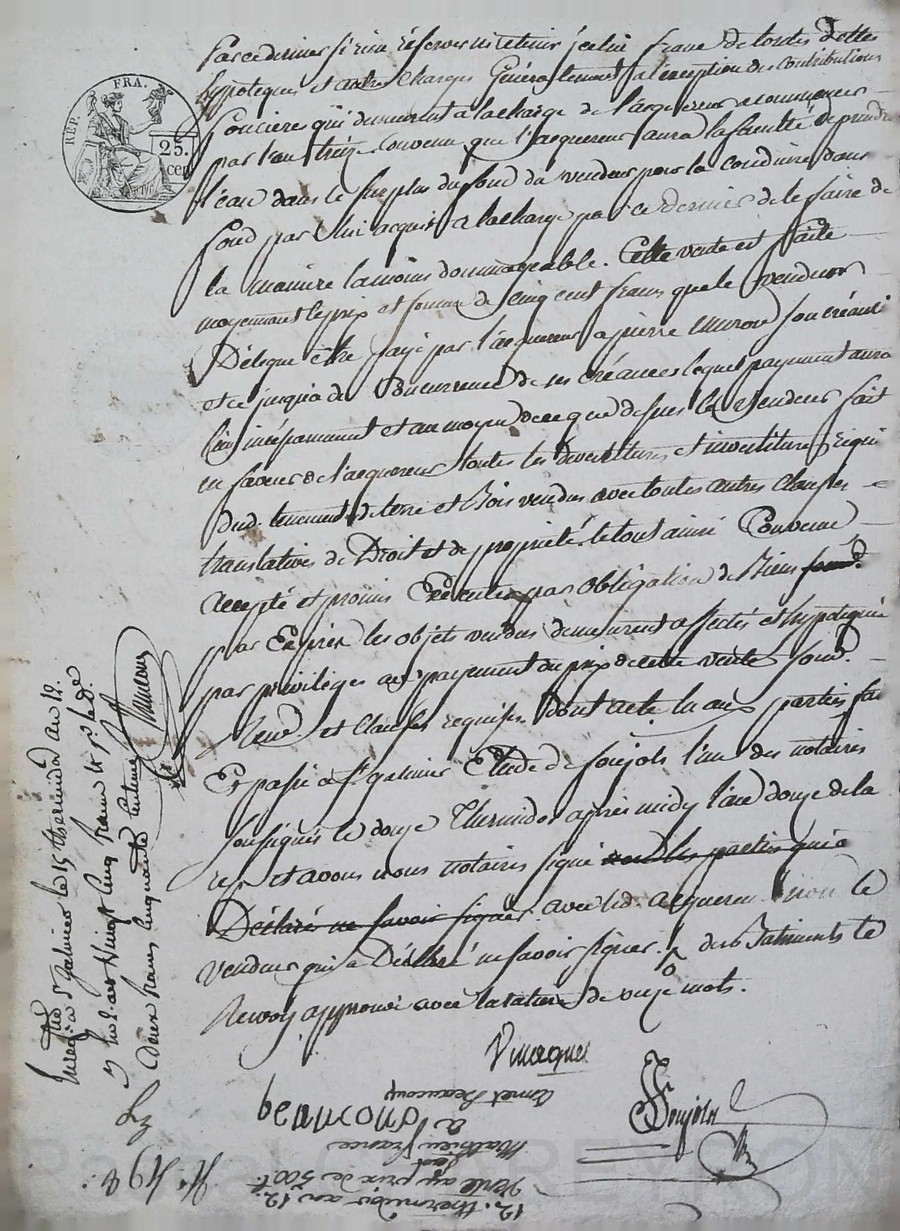 REP. FRA.
25.
cen
par ce dernier si rien réserver ni retenir jcelui franc de toutes Dettes
hypoteques et autres Charges Généralement a l'exception des Contributions
foncieres qui demeurent a la charge de l'acquereur a commencer
par l'an treize Convenu que l'acquereur aura la faculté de prendre
l'eau dans le surplus du fond du vendeur pour la conduire dans
fond par lui acquis a la charge par ce dernier de le faire de
la maniere la moins dommageable. Cette vente est faite
moyennant le prix et somme de Cinq cent francs que le vendeur
Délegue être payé par l'acquereur a pierre Muron son créancier
et ce jusqu'a du Concurrence de ses créances lequel payement aura
lieu incessamment et au moyen de ce que dessus le Vendeur fait
en faveur de l'acquereur toutes les devestitures et investitures
dud. tenement de terre et Bois vendus avec toutes autres Clauses
translatives de Droit et de propriété. le tout ainsi Convenu
accepté et promis Exécuter par obligation de Biens
par Exprès les objets vendus demeurent affectés et hypotequés
par privilèges au payement du prix de cette vente soum.
Renv. et Clauses requises Dont acte lu aux parties fai
Et passé a St. galmier Etude de Soujols l'un des notaires
soussignés le douze Thermidor après midy l'an douze de la
rep. et avons nous notaires signé les parties qui a
Déclaré ne savoir signer avec led. acquereur non le
vendeur qui a Déclaré ne savoir signer. des Batiments le
Renvoy approuvé avec la rature de onze mots.
beaucoup
Soujols
Enreg. a St galmier le 15 thermidor an 12.
vingt cinq francs
deux francs cinquante centimes
12. thermidor an 12
Vente au prix de 500 f.
Mathieu france
a
amet Beaucoup